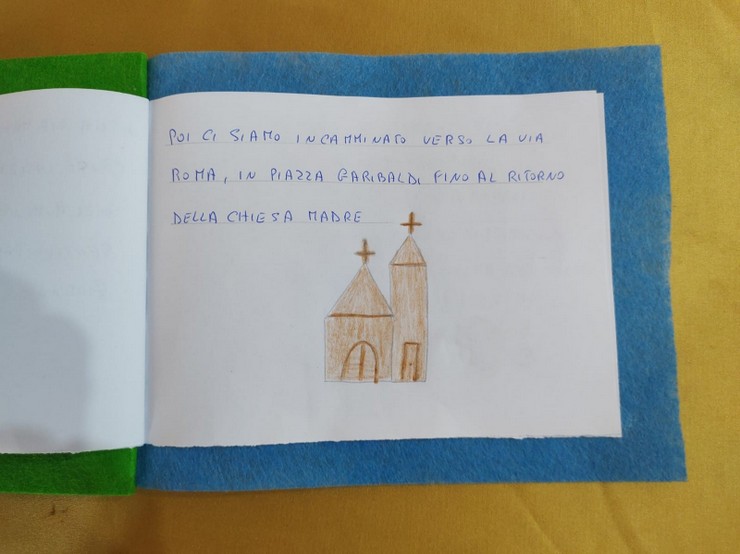 POI CI SIAMO INCAMMINATO VERSO LA VIA
ROMA, IN PIAZZA GARIBALDI FINO AL RITORNO
DELLA CHIESA MADRE